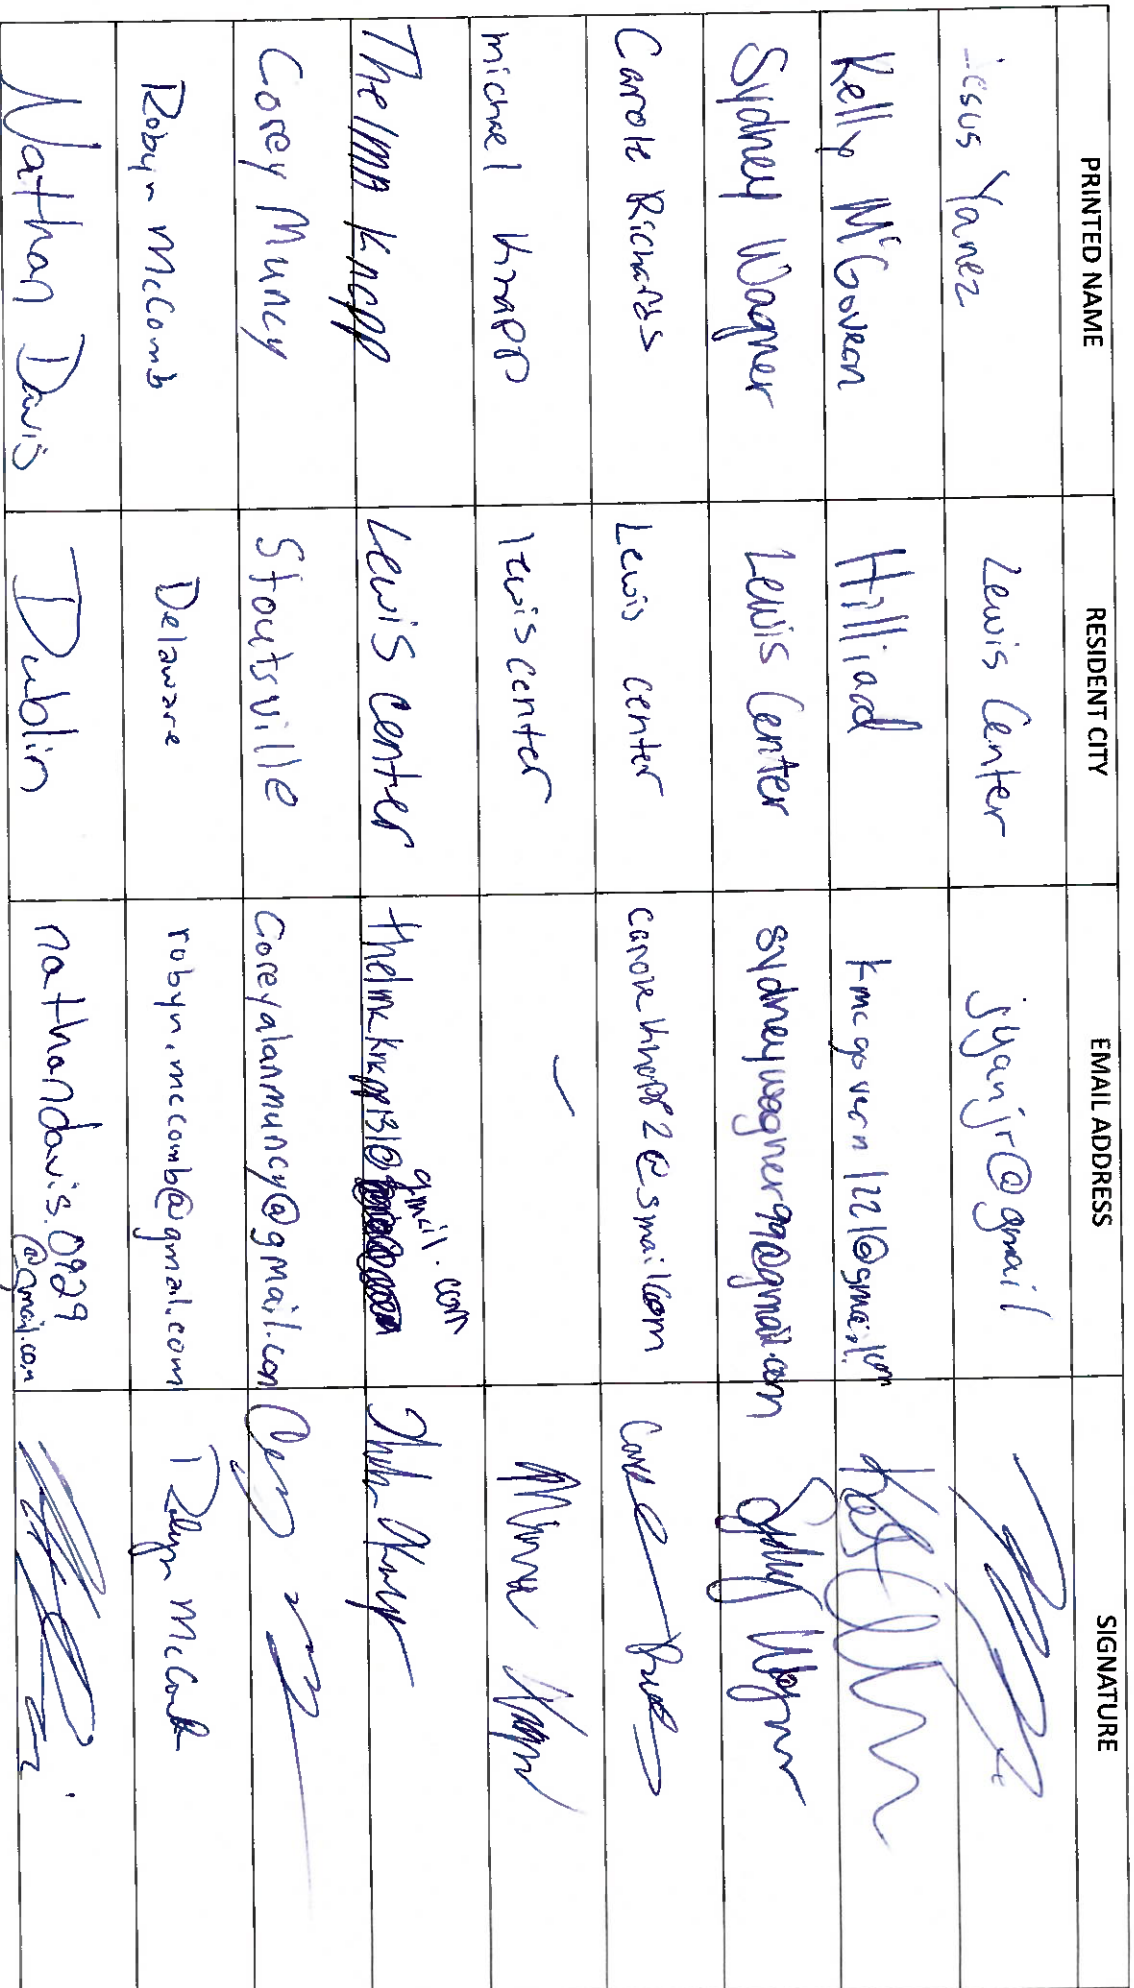 PRINTED NAME RESIDENT CITY EMAIL ADDRESS SIGNATURE
Jesus Yanez Lewis Center jyanjr@gmail
Kelly McGovern Hilliard kmcgovern1221@gmail.com
Sydney Wagner Lewis Center sydneywagner99@gmail.com Sydney Wagner
Carole Richards Lewis center caroleknapp2@gmail.com
michael Knapp lewis center –
Thelma Knapp Lewis center thelmaknapp131@gmail.com
Corey Muncy Stoutsville Coreyalanmuncy@gmail.com
Robyn McComb Delaware robyn.mccomb@gmail.com Robyn McComb
Nathan Davis Dublin nathandavis.0929
@gmail.com